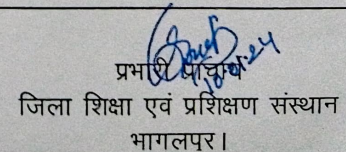 प्रभारी प्राचार्य
जिला शिक्षा एवं प्रशिक्षण संस्थान
भागलपुर।